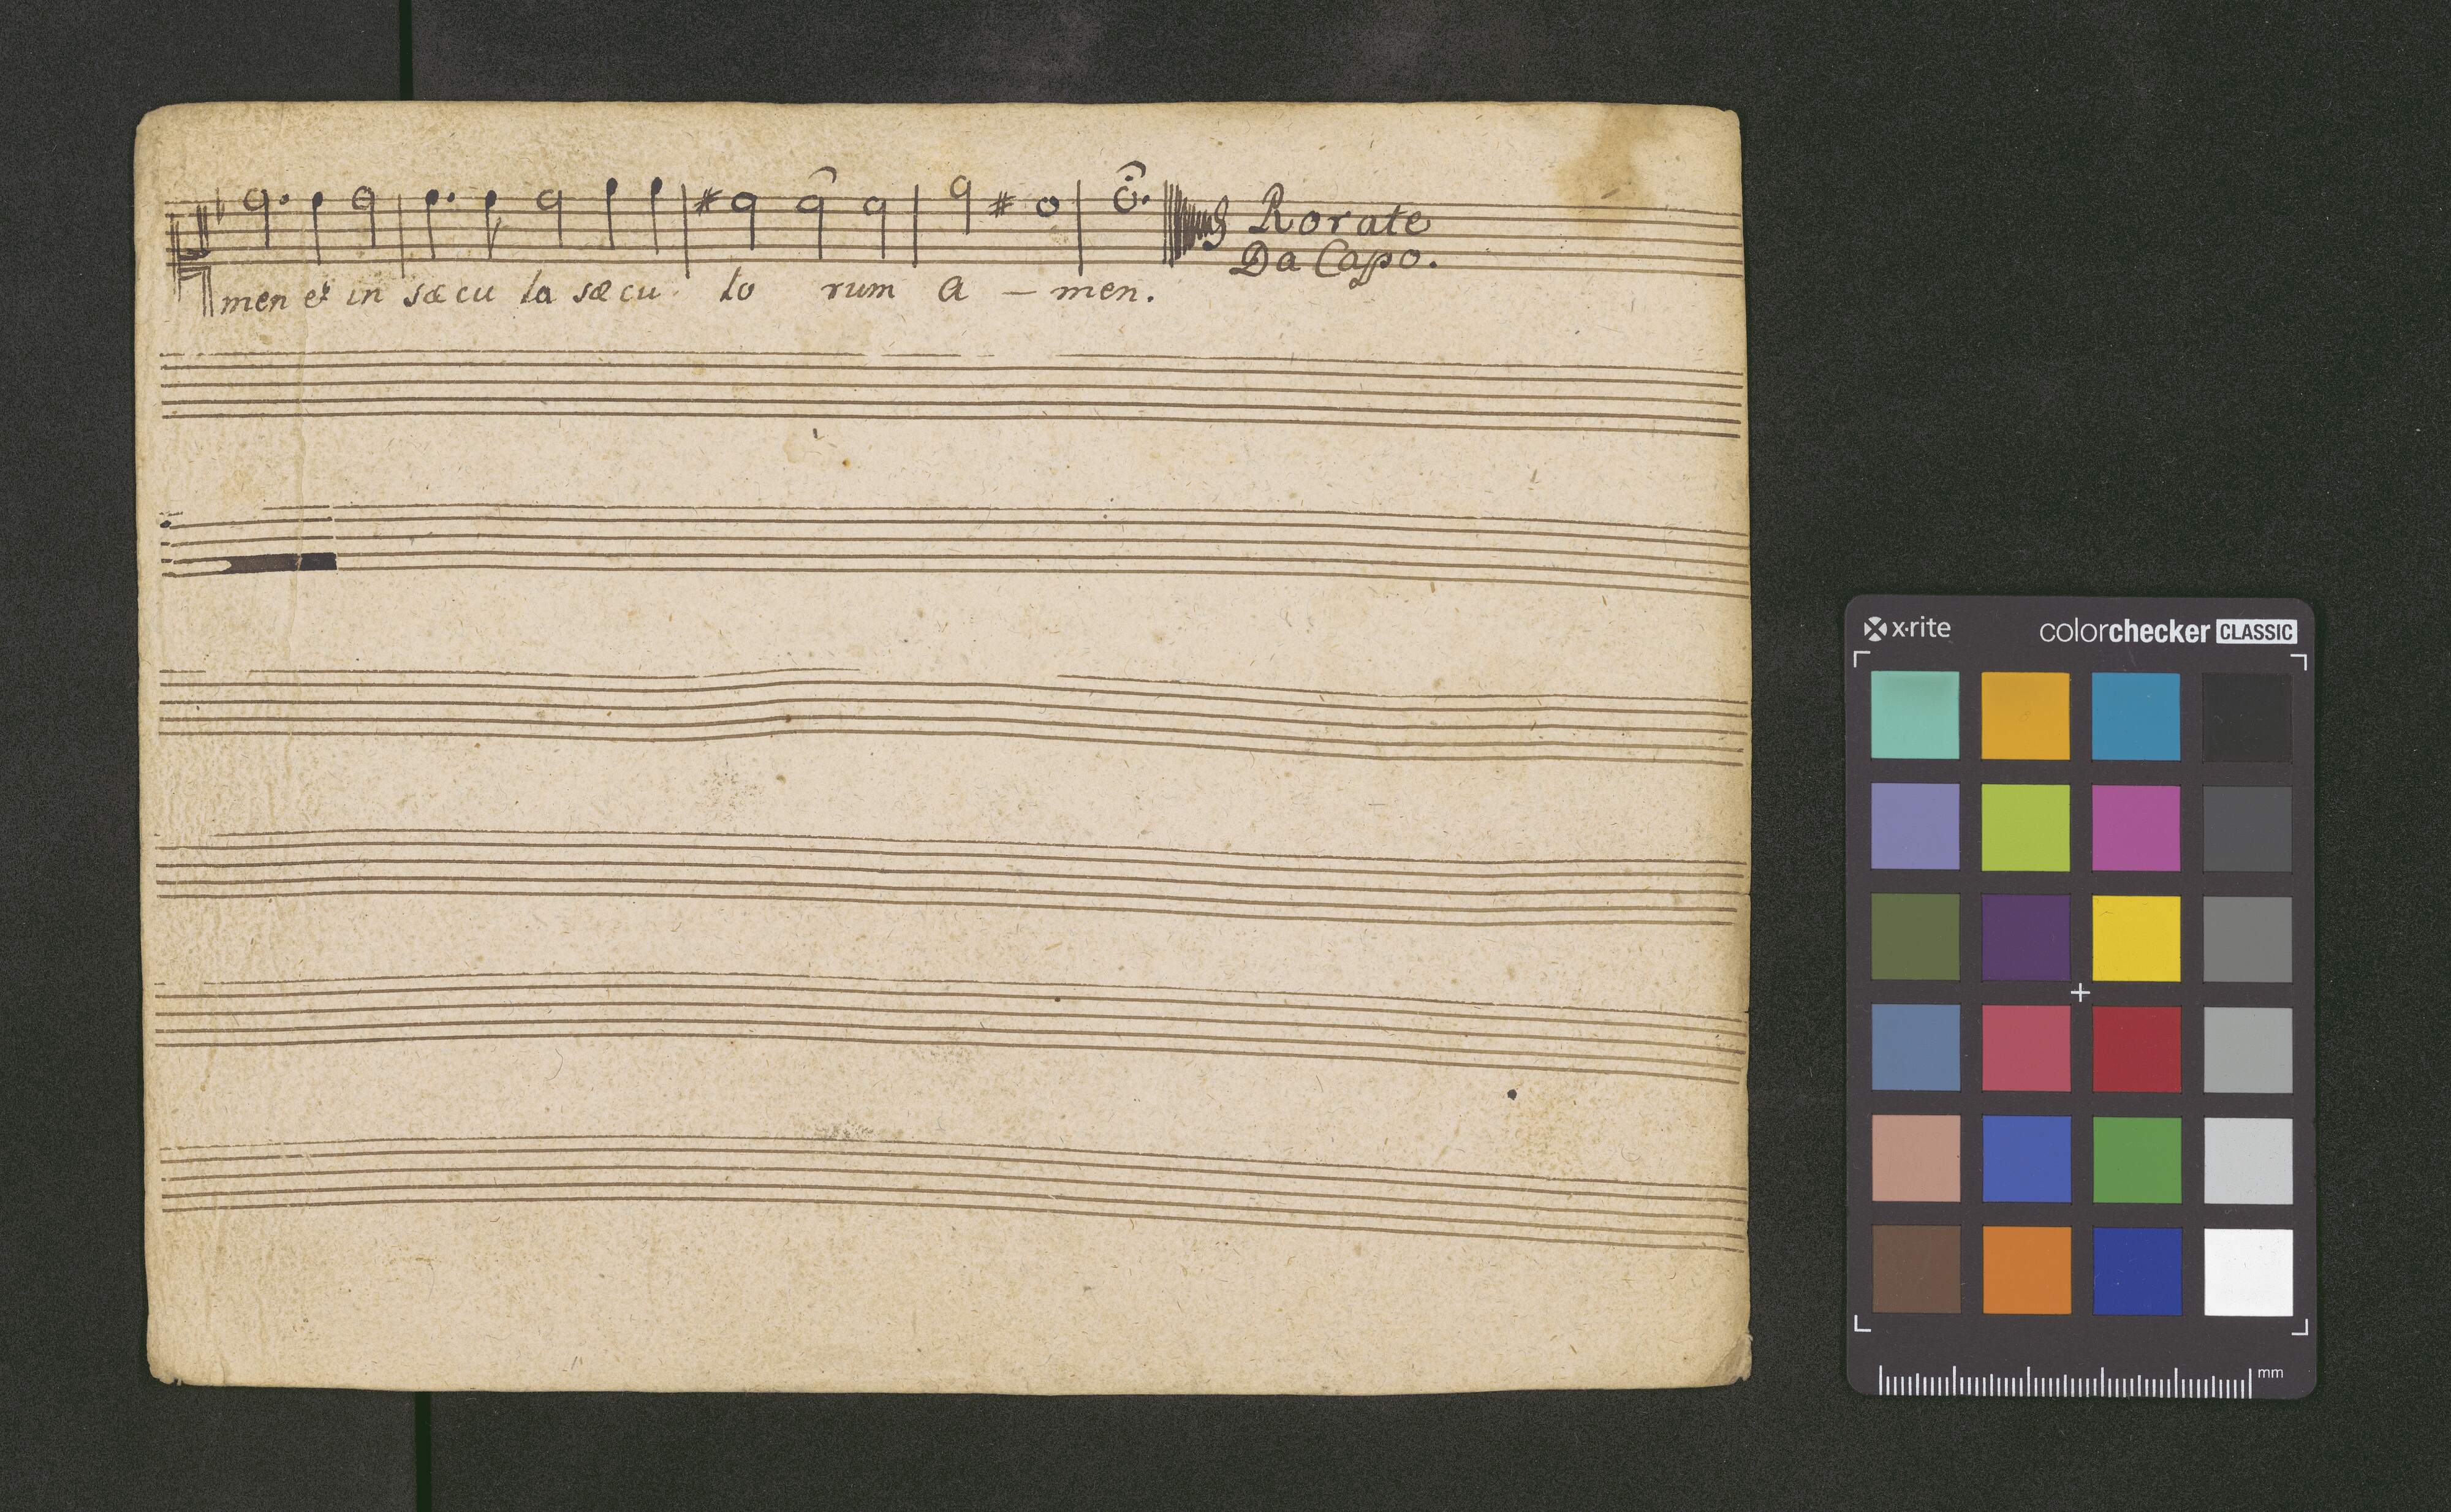 men et in sæcu la sæcu lo rum a - men.
Rorate
Da Capo.
x·rite
colorchecker CLASSIC
mm